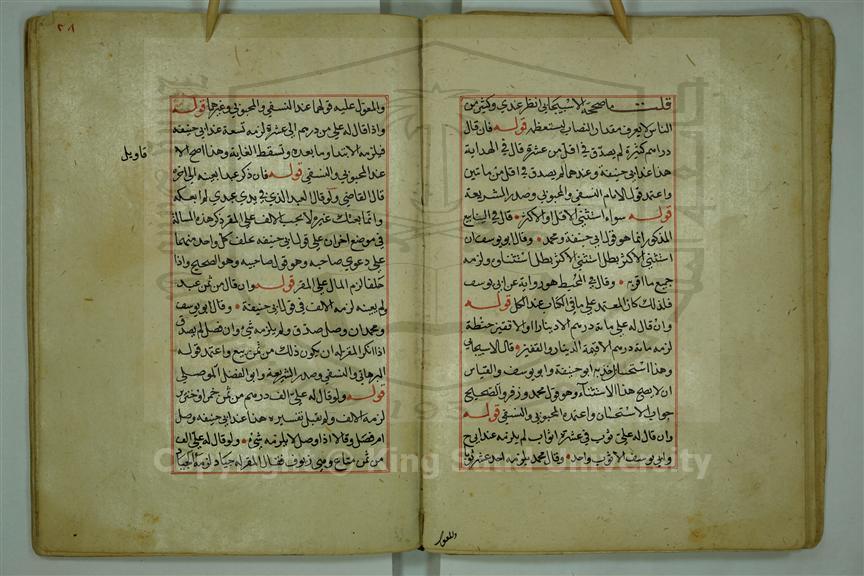 قلت ما صححه الاسبيجابي انظر عندي وكثير من
الناس لا يعرف مقدار النصاب ليستعظمه قوله فان قال
دراهم كثيرة لم يصدق في اقل من عشرة قال في الهداية
هذا عند ابي حنيفة وعندهما لم يصدق في اقل من مأتين
واعتمد قوله الامام النسفي والمحبوبي وصدر الشريعة
قوله سواء استثني الاقل او الاكثر قال في الينابيع
المذكور انما هو قول ابي حنيفة ومحمد وقال ابو يوسف ان
استثني الاكثر بطل استثناؤه ولزمه
جميع ما اقر به وقال في المحيط هو رواية عن ابي يوسف
فلذلك كان المعتمد على ما في الكتاب عند الكل قوله
وان قال له علي مائة درهم الا دينارا او الا قفيز حنطة
لزمه مائة درهم الا قيمة الدينار والقفيز قال الاسبيجابي
وهذا استحسان اخذ به ابو حنيفة وابو يوسف والقياس
ان لا يصح هذا الاستثناء وهو قول محمد وزفر والصحيح
جواب الاستحسان واعتمده المحبوبي والنسفي قوله
وان قال له علي ثوب في عشرة اثواب لم يلزمه عند ابي ح
وابي يوسف الا ثوب واحد وقال محمد يلزمه احد عشر ثوبا
والمعول
٢٠١
والمعول عليه قولهما عند النسفي والمحبوبي وغيرهما قوله
واذا قال له علي من درهم الى عشرة لزمه تسعة عند ابي حنيفة
فيلزمه الابتداء وما بعده وتسقط الغاية وهذا اصح الا
قاويل
عند المحبوبي والنسفي قوله فان ذكر عبدا بعينه الى اخره
قال القاضي ولو قال العبد الذي في يدي عبدي لم ابعكه
وانما بعتك غيره لا يجب الالف على المقر ذكر هذه المسالة
في موضع اخر ان على قول ابي حنيفة حلف كل واحد منهما
على دعوي صاحبه وهو قول صاحبيه وهو الصحيح واذا
حلفا لزم المال على المقر قوله وان قال من ثمن عبد
لم يعينه لزمه الالف في قول ابي حنيفة وقال ابو يوسف
ومحمد ان وصل صدق ولم يلزمه شئ وان فصل لم يصدق
اذا انكر المقر له ان يكون ذلك من ثمن بيع واعتمد قوله
البرهاني والنسفي وصدر الشريعة وابو الفضل الموصلي
قوله ولو قال له علي الف درهم من ثمن خمر او خنزير
لزمه الالف ولم يقبل تفسيره هذا عند ابي حنيفة وصل
ام فصل وقالا اذا وصل لا يلزمه شئ ولو قال له علي الف
من ثمن متاع وهي زيوف فقال المقر له جياد لزمه الجياد
Copyright © King Saud University